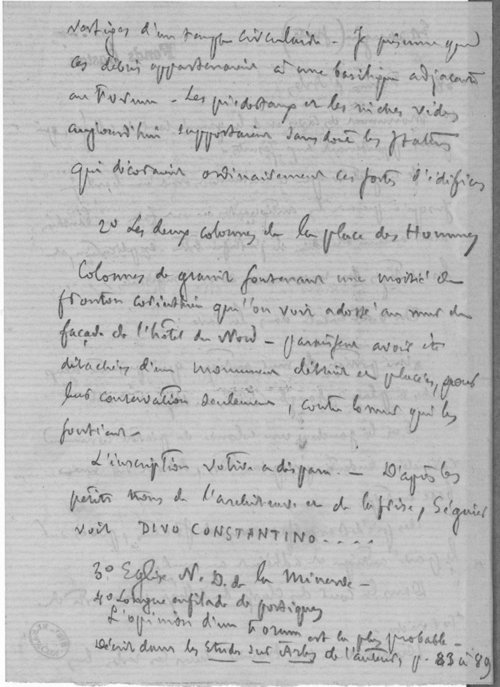 vestiges d'un temple circulaire - Je présume que
ces débris appartenaient à une basilique adjacente
au Forum - Les piédestaux et les niches vides
aujourd'hui supportaient sans doute les statues
qui décoraient ordinairement ces sortes d'édifices
2º Les deux colonnes de la place des Hommes
Colonnes de granit soutenant une moitié de
fronton corinthien qu'on voit adossé au mur de
façade de l'hôtel du Nord - paraissent avoir été
détachées d'un monument détruit et placées, pour
leur conservation seulement, contre le mur qui les
soutient -
L'inscription votive a disparu. - D'après les
petits trous de l'architrave et de la frise, Séguier
voit DIVO CONSTANTINO . . . .
3º Eglise N. D. de la Minerve -
4º Longue enfilade de portiques
L'opinion d'un Forum est la plus probable -
Décrit dans les Etudes sur Arles de l'auteur, p. 83 à 89